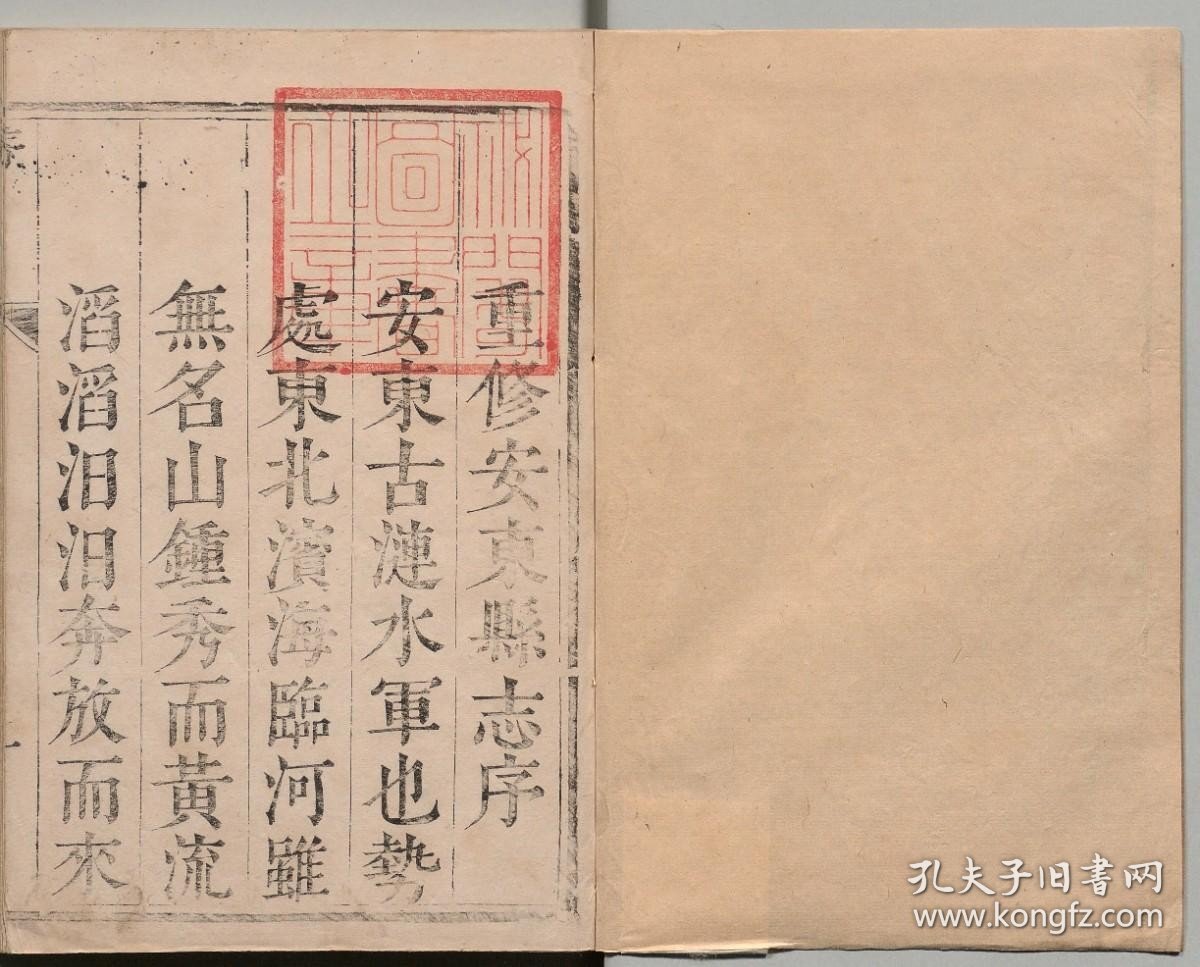 重修安東縣志序
安東古漣水軍也勢
處東北濱海臨河雖
無名山鍾秀而黃流
滔滔汩汩奔放而來
一
秘閣
圖書
之章
孔夫子旧书网
www.kongfz.com